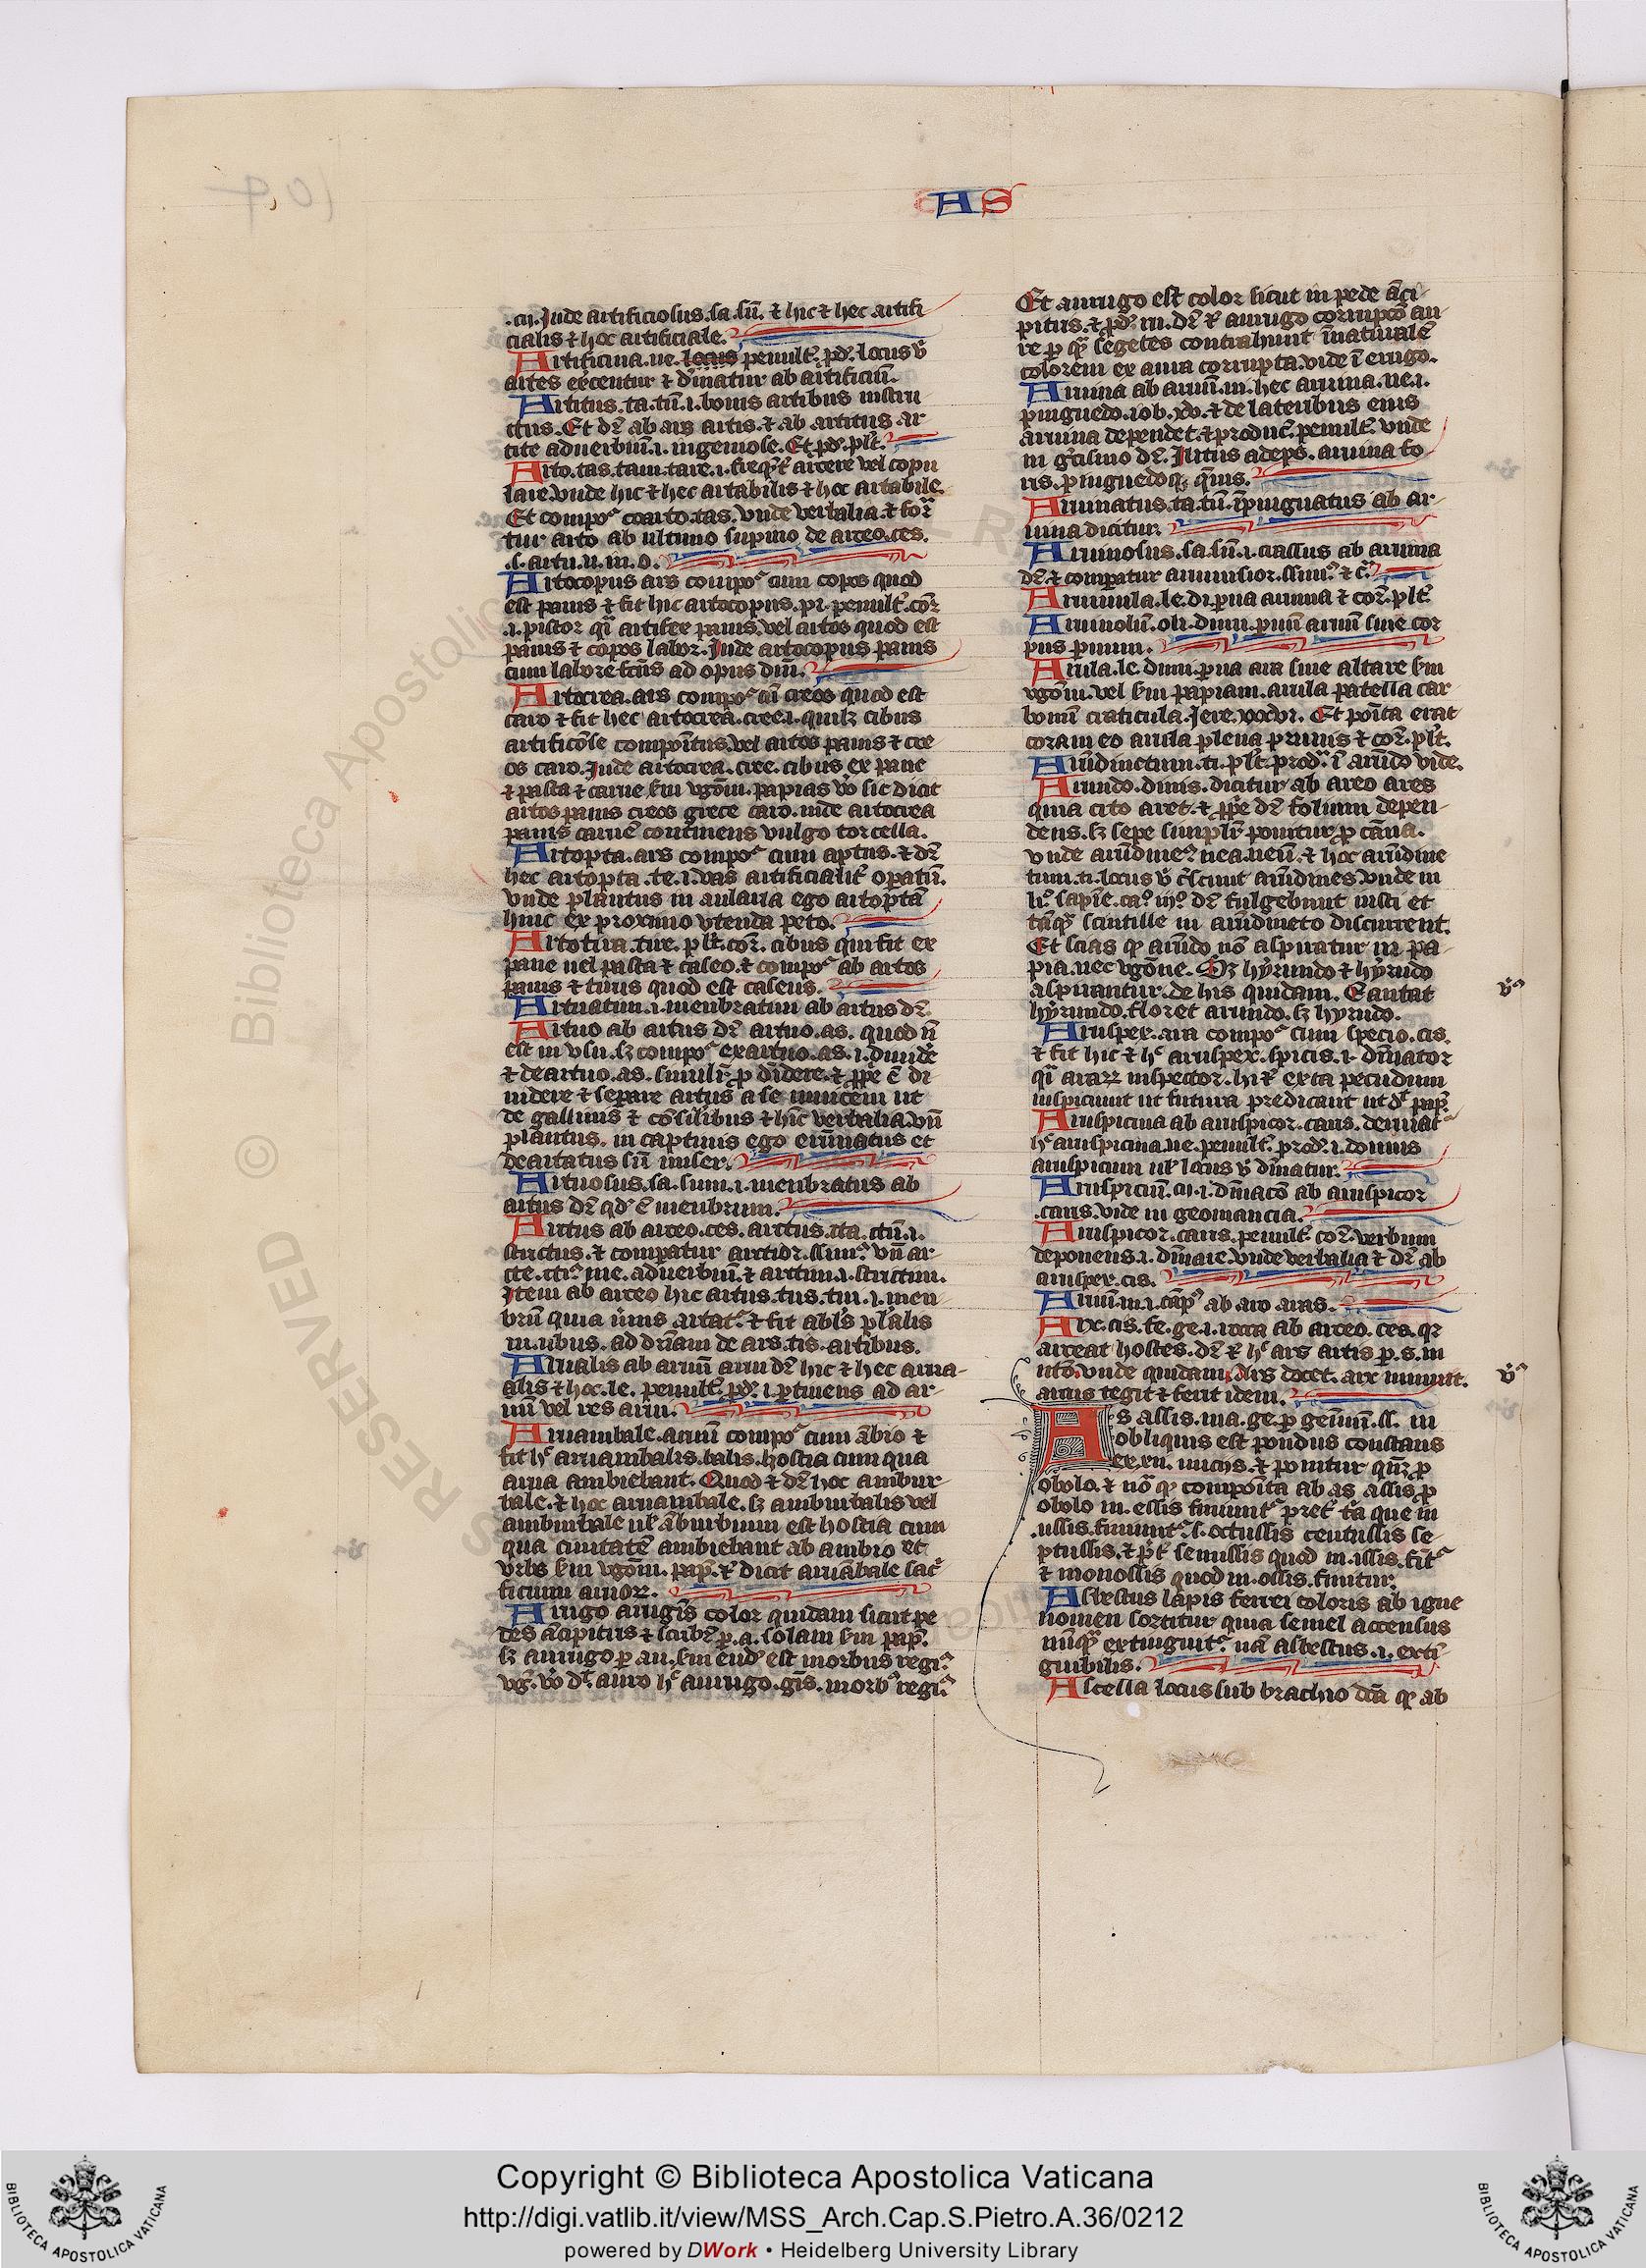 AS
.cij. Inde artificiosus.sa.sū. ⁊ hic ⁊ hec artifi
cialis ⁊ hoc artificiale.
Artificina.ne. locus penult̄. ꝓd̄. locus vͥ
artes ex̄centur ⁊ d̓inatur ab artificiū.
Artitus.ta.tū.i. bonis artibus instru
ctus. Et dr̄ ab ars artis. ⁊ ab artitus ar
tite aduerbiū.i. ingeniose. Et ꝓd̄. plt̄.
Arto.tas.taui.tare.i. freq̄t̄ artere vel copu
lare. vnde hic ⁊ hec artabilis ⁊ hoc artabile.
Et compoᶻ coarto.tas. vnde verbalia. ⁊ for
tur arto ab ultimo supino de arceo.ces.
.s. artu.u. in.o.
Artocopus ars compoᶻ cum copos quod
est panis ⁊ fit hic artocopus.pi. penult̄. cor̄.
.i. pistor q̄i artifex panis. vel artos quod est
panis ⁊ copos labor. Inde artocopus panis
cum labore fc̄us ad opus dn̄i.
Artocrea. ars compoᶻ cū creos quod est
caro ⁊ fit hec artocrea.cree.i. quilꝫ cibus
artificōse compoītus. vel artos panis ⁊ cre
os caro. Inde artocrea.cree. cibus ex pane
⁊ pasta ⁊ carne km̄ vgōm. papias v̄o sic dicit
artos panis creos grece caro. inde artocrea
panis carnē continens vulgo torcella.
Artopta. ars compoᶻ cum aptus. ⁊ dr̄
hec artopta.te.i. vas artificialit̄ op̄atū.
vnde plautus in aularia ego artoptā
hinc ex proximo vtenda peto.
Artotira.tire. plt̄. cor̄. cibus qui fit ex
pane uel pasta ⁊ caseo. ⁊ compoᶻ ab artos
panis ⁊ tiros quod est caseus.
Artuatim.i. menbratim ab artus dr̄.
Artuo ab artus dr̄ artuo.as. quod n̄
est in vsu. sꝫ compoᶻ exartuo.as.i. diuide
⁊ deartuo.as. simulr̄ ꝓ diuidere. ⁊ ꝓpe ē di
uidere ⁊ separe artus a se inuicem ut
de gallinis ⁊ cōsilibus ⁊ hīc verbalia. vn̄
plautus. in captiuis ego eūnatus et
deartatus sū miser.
Artuosus.sa.sum.i. menbratus ab
artus dr̄ qd̄ ē menbrum.
Artus ab arceo.ces. arctus.cta.ctū.i.
strictus. ⁊ compatur arctior.ssimꝰ. vn̄ ar
cte.ctiꝰ.ime. aduerbiū. ⁊ arctum.i. strictim.
Item ab arceo hic artus.tus.tui.i. men
brū quia iūis artat̄. ⁊ fit abl̄s pl̄alis
in.ubus. ad dr̄iam de ars.tis.artibus.
Arualis ab aruū arui dr̄ hic ⁊ hec arua
alis ⁊ hoc.le. penult̄. ꝓd̄.i. ꝑtinens ad ar
uū vel res arui.
Aruambale. aruū compoᶻ cum ābio ⁊
fit hᶜ aruambalis.balis. hostia cum qua
arua ambiebant. Quod ⁊ dr̄ hoc ambur
bale. ⁊ hoc aruambale. sꝫ amburbalis vel
amburbale ul̄ āburbium est hostia cum
qua ciuitatē ambiebant ab ambio et
vrbs km̄ vgōm. pap̄. ⁊ dicit aruābale sac̄
ficium aruor̄.
Arugo arugīs color quidam sicut pe
des ācipitris ⁊ scrib̄ ꝑ.a. solam km̄ pap̄.
sꝫ aurugo ꝑ au. km̄ eūd̄ est morbus regiꝰ
vḡ. v̄o d̄t auro hᶜ aurugo.gīs. morbꝰ regiꝰ
Et aurugo est color sicut in pede āci
pitris. ⁊ ꝓd̄. in. dr̄ ⁊ aurugo corrupcō au
re ꝑ qm̄ segetes contrahunt inaturalē
colorem ex aura corrupta. vide ī erugo.
Aruina ab aruū.ui. hec aruina.ne.i.
pinguedo. iob. xv. ⁊ de lateribus eius
aruina dependet. ⁊ produc̄. penult̄. vnde
in gͣcismo dr̄. Intus adeps. aruina fo
ris. pinguedoqꝫ q̄uis.
Aruinatus.ta.tū. īpinguatus ab ar
uina dicitur.
Aruinosus.sa.sū.i. crassus ab aruina
dr̄. ⁊ compatur aruinosior.ssimꝰ. ⁊ c̄.
Aruinula.le.di. ꝑua aruina ⁊ cor̄. plt̄.
Aruinolū.oli. dimi. ꝑuū aruū siue cor
pus ꝑuum.
Arula.le. dimi. ꝑua ara siue altare km̄
vgōm. vel km̄ papiam. arula patella car
bonū craticula. Jere. xxxvi. Et poīta erat
coram eo arula plena prunis ⁊ cor̄. plt̄.
Arūdinetum.ti. plt̄. prod̄. ī arūdo vide.
Arundo.dinis. dicitur ab areo ares
quia cito aret. ⁊ ꝓpe dr̄ folium depen
dens. sꝫ sepe simplr̄ ponitur ꝓ cāna.
vnde arūdineꝰ.nea.neū. ⁊ hoc arūdine
tum.ti. locus vͥ c̄scunt arūdines vnde in
li. sapīe. caͦ. iijͦ. dr̄ fulgebunt iusti et
tāqm̄ scintille in arūdineto discurrent.
Et scias qꝫ arūdo nō aspiratur in pa
pia. nec vgōne. Sꝫ hyrundo ⁊ hyrudo
aspirantur. de his quidam. Cantat
hyrundo. floret arundo. sꝫ hyrudo.
Aruspex. ara compoᶻ cum specio.cis.
⁊ fit hic ⁊ hᶜ aruspex.spicis.i. diuinator
q̄i araꝝ inspector. hi ⁊ exta pecudum
inspiciunt ut futura predicant ut d̄t pap̄.
Aruspicina ab aruspicor.caris. deriuat̄
hᶜ aruspicina.ne. penult̄. prod̄.i. domus
aruspicum ul̄ locus vͥ diuinatur.
Aruspiciū.cij.i. diuinacō ab aruspicor
.caris. vide in geomancia.
Aruspicor.caris. penult̄. cor̄. verbum
deponens.i. diuinare. vnde verbalia ⁊ dr̄ ab
aruspex.cis.
Aruū.ui.i. cāpꝰ ab aro aras.
Arx.cis. fe.ge.i. rocca ab arceo.ces. qꝛ
arceat hostes. dr̄ ⁊ hᶜ ars artis ꝑ.s. in
ntō. vnde quidam. Ars docet. arx munit.
arcus tegit ⁊ ferit idem.
As assis. ma.ge. ꝑ geminū.ss. in
obliquis est pondus constans
ex.xij. uncijs. ⁊ ponitur qn̄qꝫ ꝓ
obolo. ⁊ nō qꝫ compoīta ab as assis ꝓ
obolo in.essis finiunt̄ pret̄ tīa que in
.ussis. finiunt̄.s. octussis centussis se
ptussis. ⁊ p̄t̄ semissis quod in.issis. fit̄
⁊ monossis quod in.ossis. finitur.
Asbestus lapis ferrei coloris ab igne
nomen sortitur quia semel accensus
nūqm̄ extinguit̄. nā asbestus.i. exti
guibilis.
Ascella locus sub brachio dc̄a qꝫ ab
Copyright © Biblioteca Apostolica Vaticana
http://digi.vatlib.it/view/MSS_Arch.Cap.S.Pietro.A.36/0212
powered by DWork • Heidelberg University Library
BIBLIOTECA APOSTOLICA VATICANA
BIBLIOTECA APOSTOLICA VATICANA